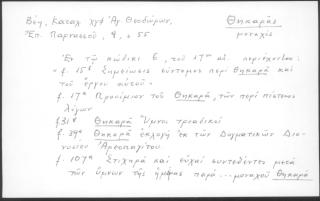 Βέη, Καταλ. χγφ Ἁγ. Θεοδώρων, Θηκαρᾶς
Ἐπ. Παρνασσοῦ, 9, σ 55 μοναχός
Ἐν τῷ κώδικι 6, τοῦ 17ου αἰ. περιέχονται:
"f. 15α Σημείωσις σύντομος περὶ Θηκαρᾶ καὶ
τοῦ ἔργου αὐτοῦ"
f. 17α Προοίμιον τοῦ Θηκαρᾶ, τῶν περὶ πίστεως
λόγων
f. 31α Θηκαρᾶ Ὕμνοι τριαδικοί
f. 59α Θηκαρᾶ ἐκλογὴ ἐκ τῶν Δογματικῶν Διο-
νυσίου Ἀρεοπαγίτου
f. 107α Στιχηρὰ καὶ εὐχαὶ συντεθέντες μετὰ
τῶν ὕμνων τῆς ἡμέρας παρὰ... μοναχοῦ Θηκαρᾶ